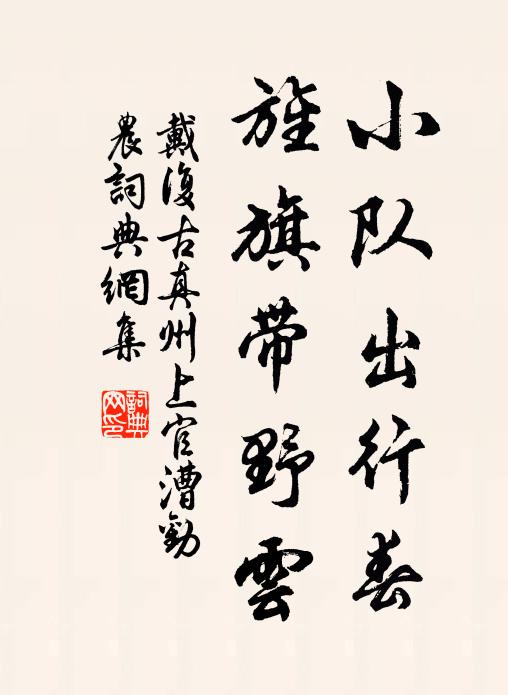 小队出行春
旌旗带野雲
戴復古真州上官漕勸
農詞典網集
詞典网印